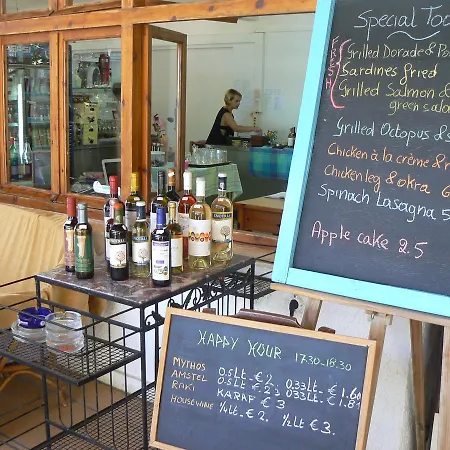 Special Tod
FRESH
Grilled Dorade & Po
Sardines fried
Grilled Salmon &
green sala
Grilled Octopus &
Chicken à la crème &
Chicken leg & okra 6
Spinach Lasagna 5
Apple cake 2.5
HAPPY HOUR 17.30-18.30
MYTHOS 0.5Lt € 2 0.33Lt € 1.60
AMSTEL 0.5Lt € 2.3 0.33Lt € 1.81
RAKI KARAF € 3
HOUSEWINE 1/4Lt € 2. 1/2Lt € 3.